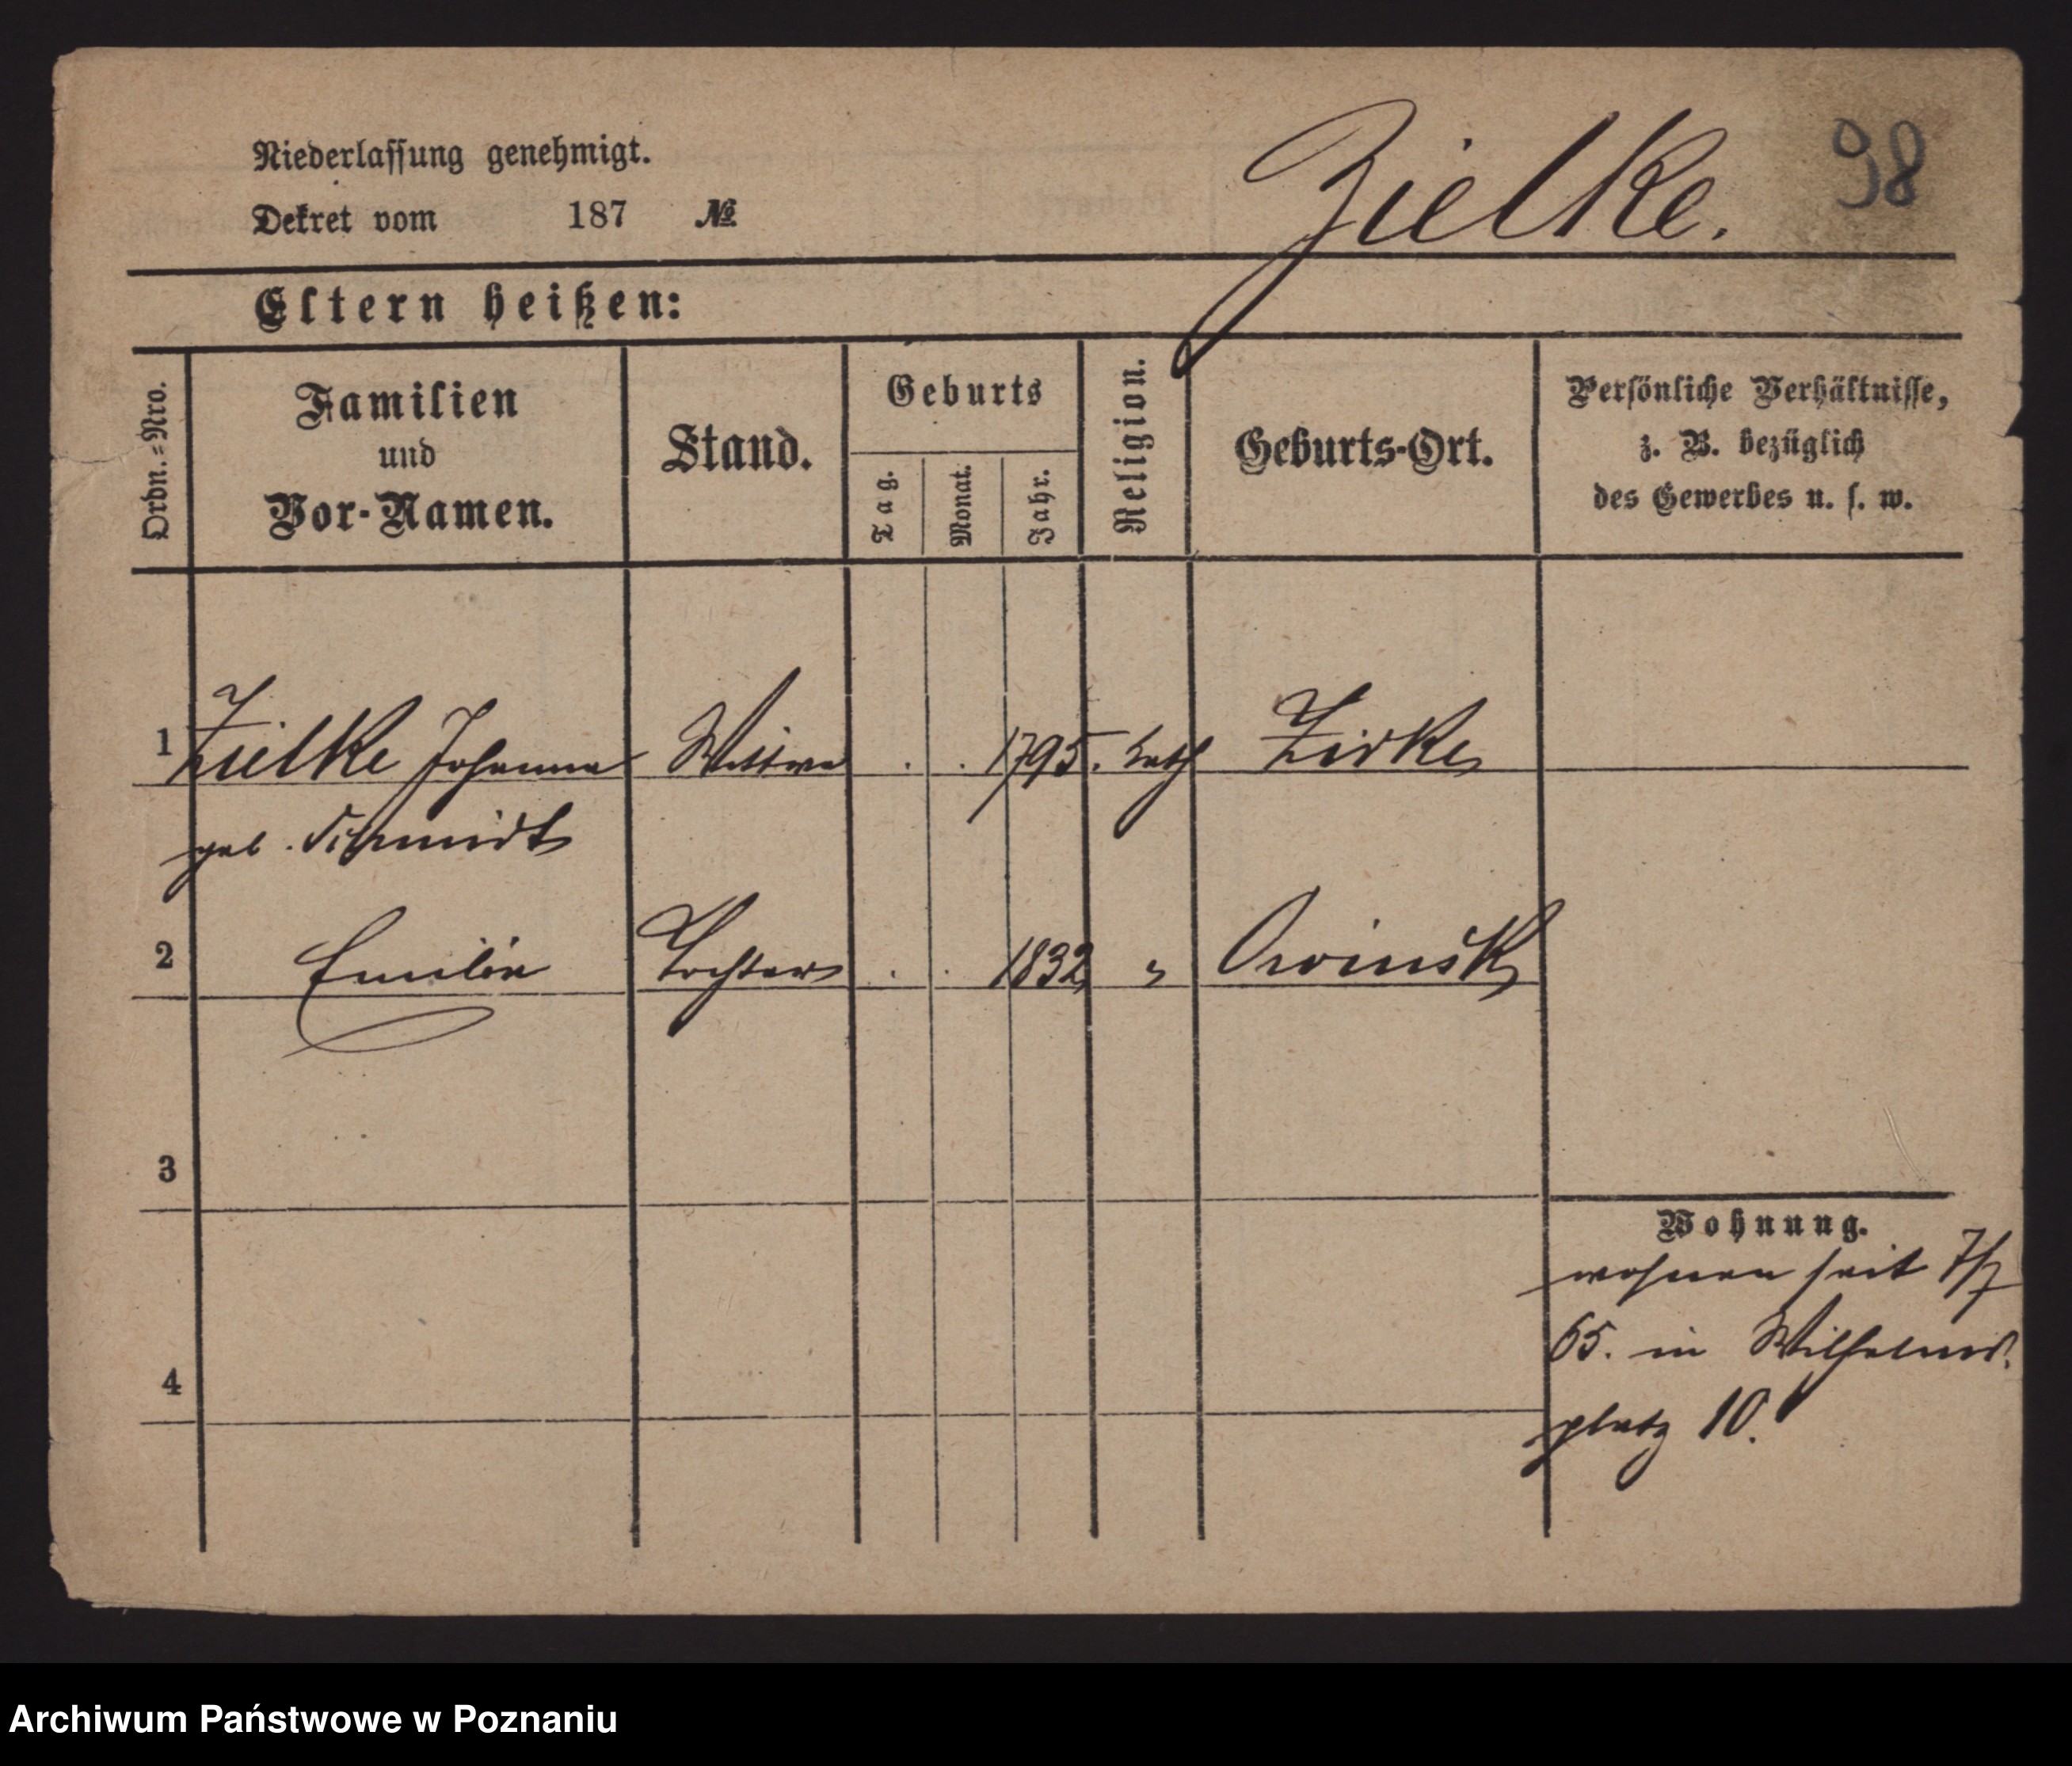 Niederlassung genehmigt.
Zielke.
98
Dekret vom 187 №
Eltern heißen:
Ordn.=Nro.
Familien
und
Vor-Namen.
Stand.
Geburts
Tag.
Monat.
Jahr.
Religion.
Geburts-Ort.
Persönliche Verhältnisse,
z. B. bezüglich
des Gewerbes u. s. w.
1 Zielke Johanna Wittwe . . 1795. kath Zirke
geb. Schmidt
2 Emilie Tochter . . 1832 " Owinsk
3
Wohnung.
wohnen seit 7/7
65. in Wilhelms.
4
platz 10.
Archiwum Państwowe w Poznaniu